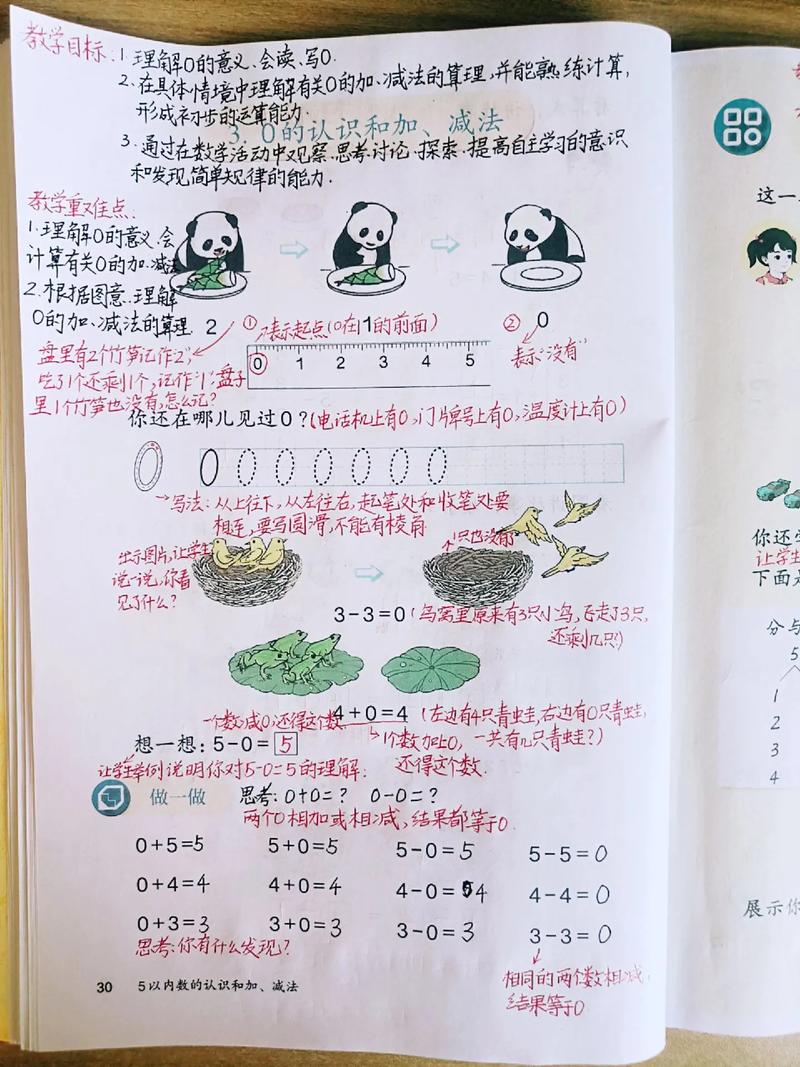 教学目标:1.理解0的意义、会读、写0.
2.在具体情境中理解有关0的加、减法的算理,并能熟练计算,
形成初步的运算能力.
3 0的认识和加、减法
3.通过在数学活动中观察、思考、讨论、探索、提高自主学习的意识
和发现简单规律的能力.
教学重难点:
1.理解0的意义、会
计算有关0的加、减法
2.根据图意、理解
0的加、减法的算理.
2
①→表示起点(0在1的前面)
② 0
表示“没有”
0 1 2 3 4 5
盘里有2个竹笋记作“2”,
吃了1个还剩1个,记作“1”,盘子
里1个竹笋也没有,怎么记?
你还在哪儿见过0?(电话机上有0,门牌号上有0,温度计上有0)
0
→写法:从上往下,从左往右,起笔处和收笔处要
相连,要写圆滑,不能有棱角.
出示图片,让学生
说一说,你看
见了什么?
1只也没有
3-3=0(鸟窝里原来有3只小鸟,飞走了3只,
还剩几只?)
4+0=4(左边有4只青蛙,右边有0只青蛙,
一共有几只青蛙?)
一个数减0,还得这个数
1个数加上0,
还得这个数.
想一想:5-0=5
让学生举例说明你对5-0=5的理解.
做一做 思考:0+0=? 0-0=?
两个0相加或相减,结果都等于0.
0+5=5 5+0=5 5-0=5 5-5=0
0+4=4 4+0=4 4-0=4 4-4=0
0+3=3 3+0=3 3-0=3 3-3=0
思考:你有什么发现?
相同的两个数相减,
结果等于0
30 5以内数的认识和加、减法
这一
你还
让学生
下面是
分与
5
1
2
3
4
展示你